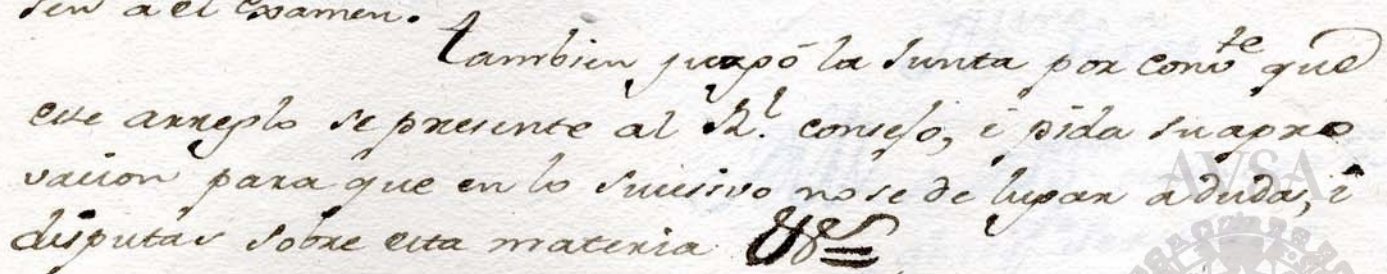 den a el examen.
tambien juzgó la Junta por conv.te que
este arreglo se presente al R.l consejo, i pida su apro
vacion para que en lo sucesivo no se de lugar a dudas, i
disputas sobre esta materia
AVSA